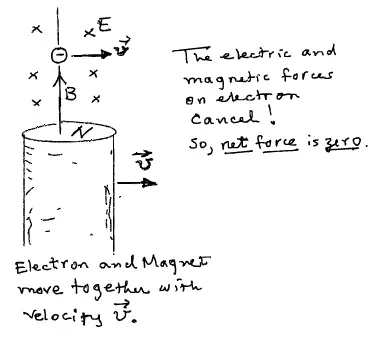 E
v
B
N
v
The electric and
magnetic forces
on electron
Cancel!
So, net force is zero.
Electron and Magnet
move together with
velocity v.